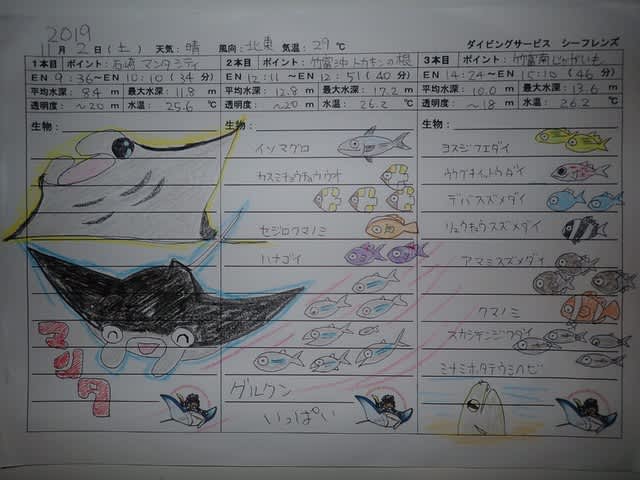 2019
11月2日(土) 天気:晴 風向:北東 気温:29℃ ダイビングサービス シーフレンズ
1本目 ポイント:石崎 マンタシティ
EN 9:36~EN 10:10(34分)
平均水深: 8.4 m 最大水深: 11.8 m
透明度: ~20 m 水温: 25.6 ℃
生物:
マンタ
2本目 ポイント:竹富沖 トカキンの根
EN 12:11~EN 12:51(40分)
平均水深: 12.8 m 最大水深: 17.2 m
透明度: ~20 m 水温: 26.2 ℃
生物:
イソマグロ
カスミチョウチョウウオ
セジロクマノミ
ハナゴイ
グルクン
いっぱい
3本目 ポイント:竹富南じゃがいも
EN 14:24~EN 15:10(46分)
平均水深: 10.0 m 最大水深: 13.6 m
透明度: ~18 m 水温: 26.2 ℃
生物:
ヨスジフエダイ
デバスズメダイ
リュウキュウスズメダイ
アマミスズメダイ
クマノミ
スカシテンジクダイ
ミナミホタテウミヘビ